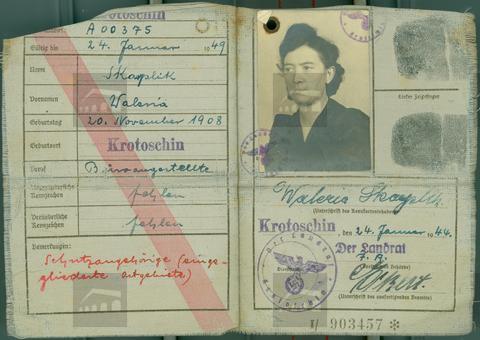 Krotoschin
A 00375
Gültig bis
24. Januar 1949
Name
Skaplik
Vornamen
Waleria
Geburtstag
20. November 1908
Geburtsort
Krotoschin
Beruf
Büroangestellte
Unveränderliche
Kennzeichen
fehlen
Veränderliche
Kennzeichen
fehlen
Bemerkungen:
Schutzangehörige (einge-
gliederte Ostgebiete)
Linker Zeigefinger
Waleria Skaplik
(Unterschrift des Kennkarteninhabers)
Krotoschin, den 24. Januar 1944
Der Landrat
(Unterschrift des ausfertigenden Beamten)
I/ 903457 *